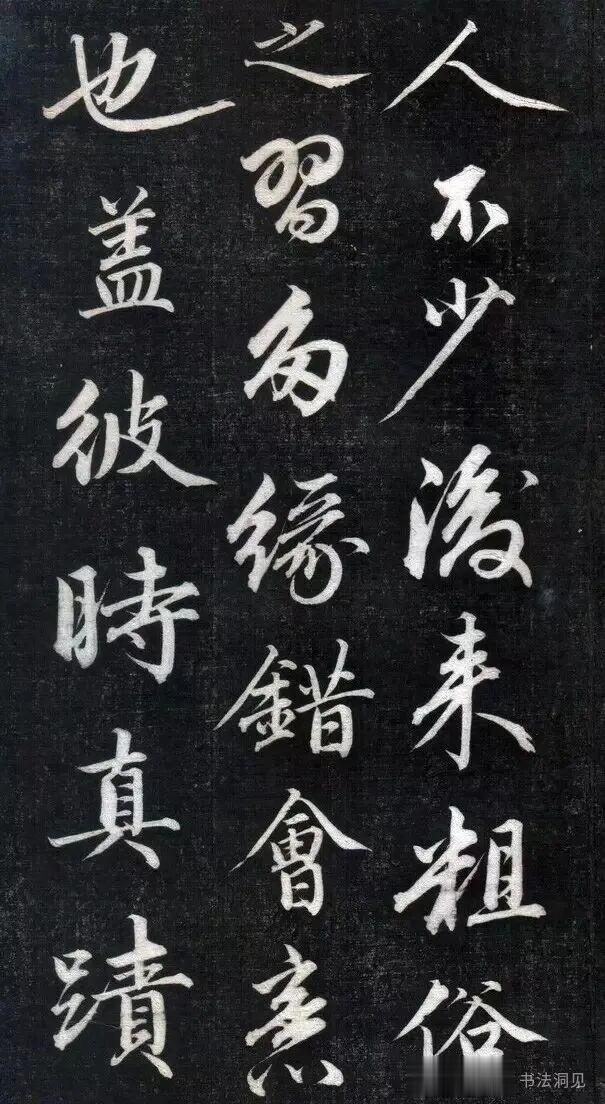 人不少後来粗俗
之習多緣錯會意
也盖彼時真蹟
书法洞见